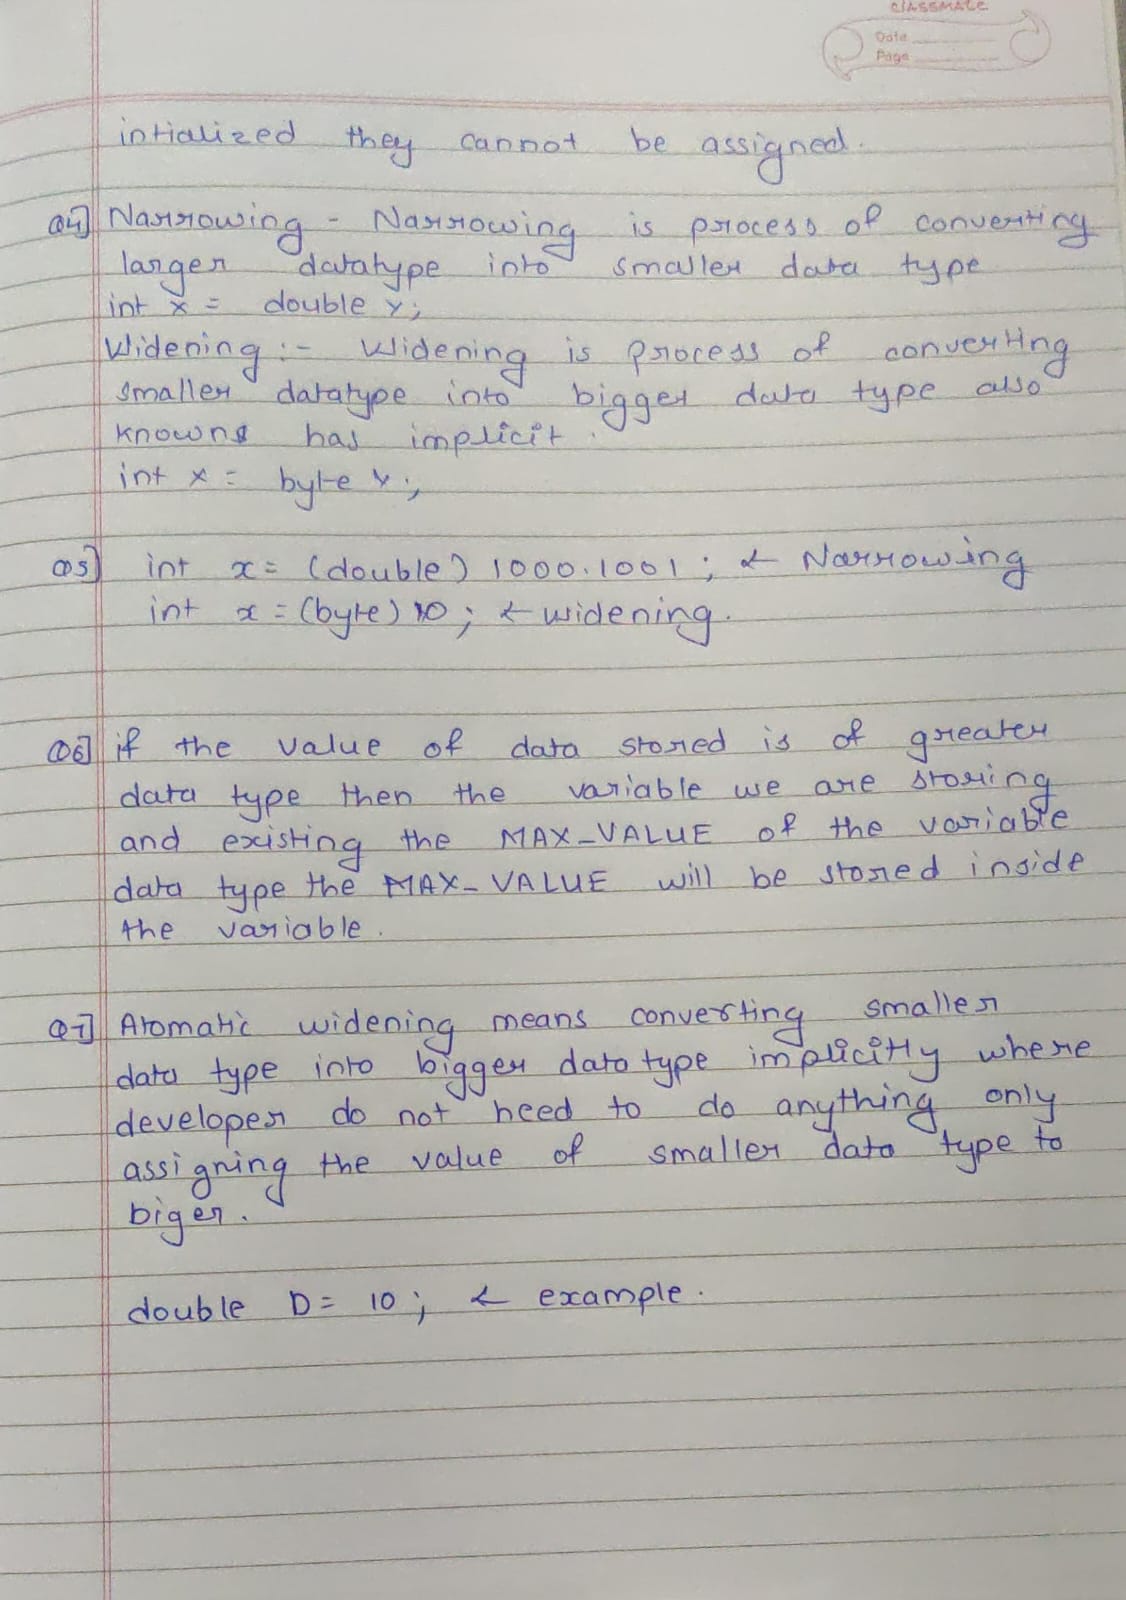 classmate
Date
Page
intialized they cannot be assigned.
Q4] Narrowing - Narrowing is process of converting
larger datatype into smaller data type
int x = double y;
Widening :- Widening is process of converting
smaller datatype into bigger data type also
knowns has implicit.
int x = byte y;
Q5] int x = (double) 1000.1001; ← Narrowing
int x = (byte) 10; ← widening.
Q6] if the value of data stored is of greater
data type then the variable we are storing
and existing the MAX_VALUE of the variable
data type the MAX_VALUE will be stored inside
the variable.
Q7] Atomatic widening means converting smaller
data type into bigger data type implicitly where
developer do not need to do anything only
assigning the value of smaller data type to
biger.
double D = 10; ← example.